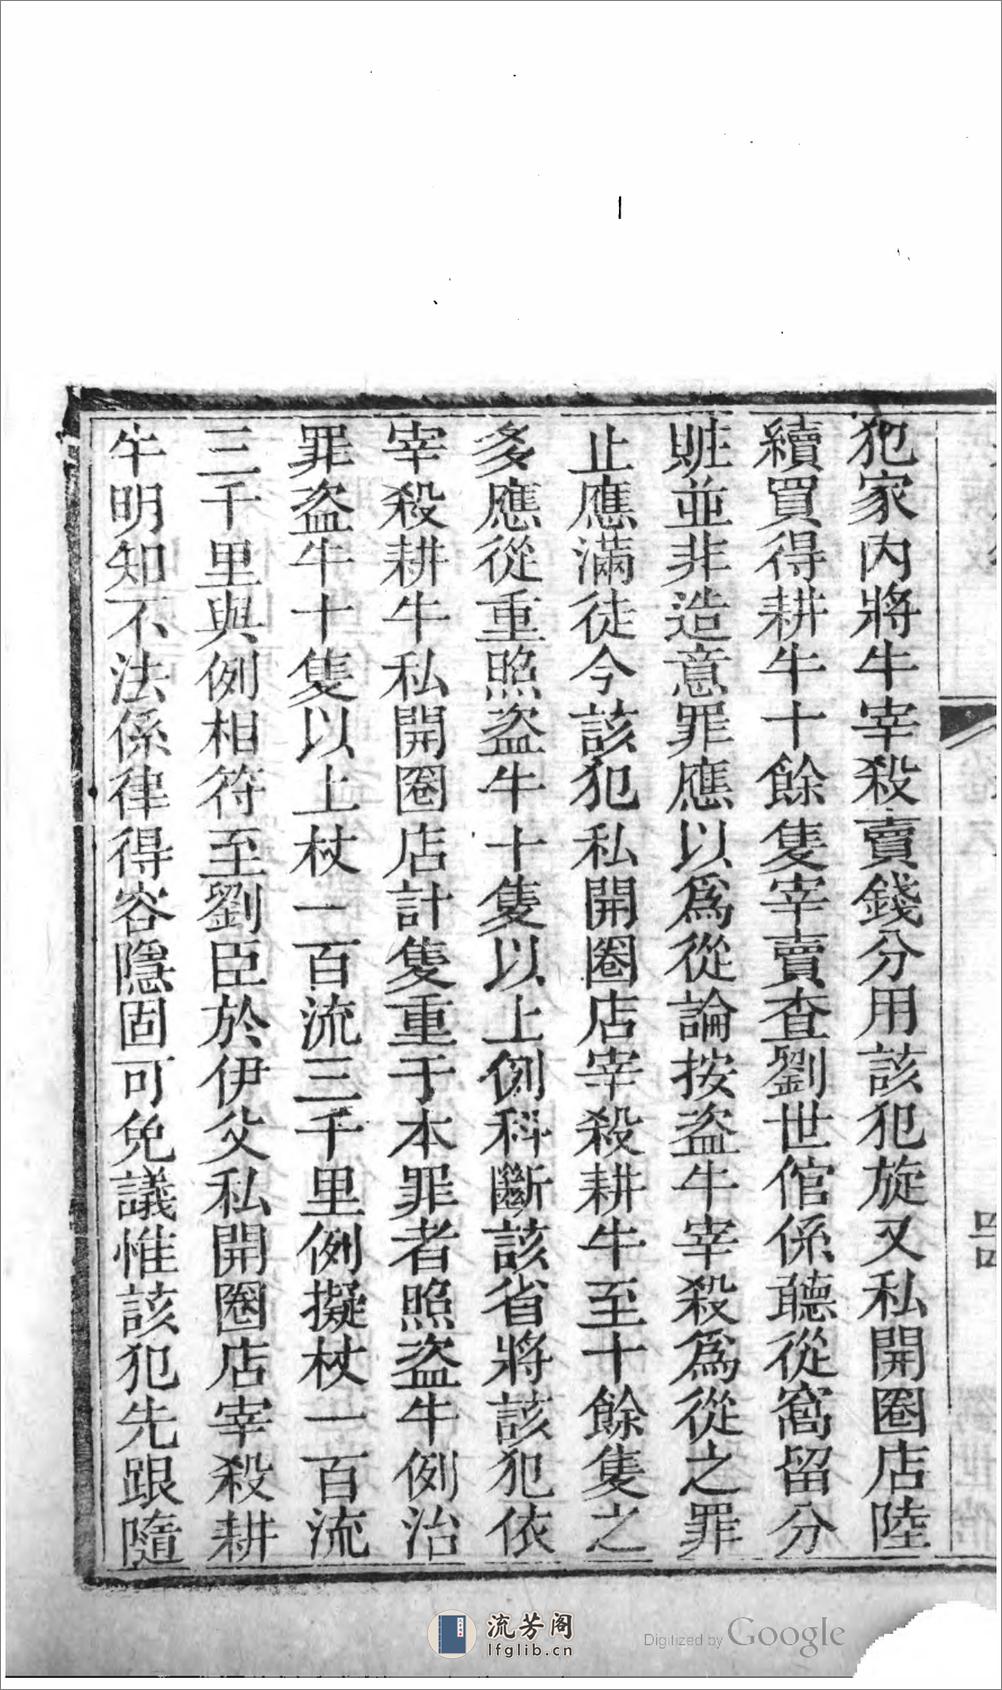 犯家內將牛宰殺賣錢分用該犯旋又私開圈店陸
續買得耕牛十餘隻宰賣查劉世倌係聽從窩留分
賍並非造意罪應以爲從論按盜牛宰殺爲從之罪
止應滿徒今該犯私開圈店宰殺耕牛至十餘隻之
多應從重照盜牛十隻以上例科斷該省將該犯依
宰殺耕牛私開圈店計隻重于本罪者照盜牛例治
罪盜牛十隻以上杖一百流三千里例擬杖一百流
三千里與例相符至劉臣於伊父私開圈店宰殺耕
牛明知不法係律得容隱固可免議惟該犯先跟隨
流芳阁
lfglib.cn
Digitized by Google